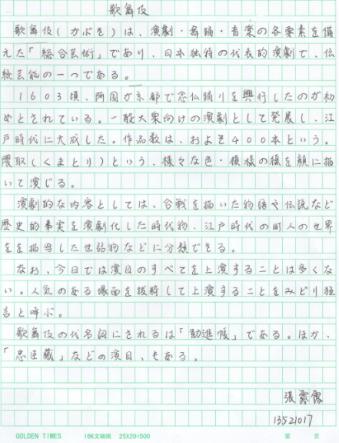 歌舞伎
歌舞伎(かぶき)は、演劇・舞踊・音楽の各要素を備
えた「総合芸術」であり、日本独特の代表的演劇で、伝
統芸能の一つである。
1603頃、阿国が京都で念仏踊りを興行したのが初
めとされている。一般大衆向けの演劇として発展し、江
戸時代に大成した。作品数は、およそ400本という。
隈取(くまとり)という、様々な色・模様の様を顔に描
いて演じる。
演劇的な内容としては、合戦を描いた物語や伝説など
歴史的事実を演劇化した時代物、江戸時代の町人の世界
をを描写した世話物などに分類できる。
なお、今日では演目のすべてを上演することは多くな
い。人気のある場面を抜粋して上演することをみどり狂
言と呼ぶ。
歌舞伎の代名詞にされるは「勧進帳」である。ほか、
「忠臣蔵」などの演目、もある。
13521017
GOLDEN TIMES 18K文稿纸 25X20=500 第 页